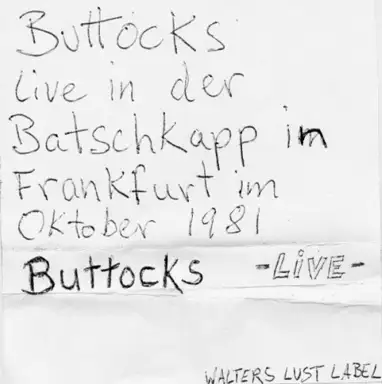 Buttocks
Live in der
Batschkapp im
Frankfurt im
Oktober 1981
Buttocks -LiVE-
WALTERS LUST LABEL